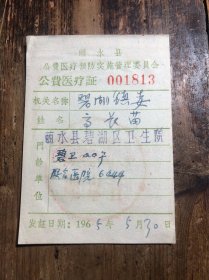 丽水县
公费医疗预防实施管理委员会
公费医疗証 001813
机关名称 碧湖镇委
姓名 高长苗
丽水县碧湖区卫生院
門診单位
碧卫 007
联合医院 6444
发証日期：1965年5月30日